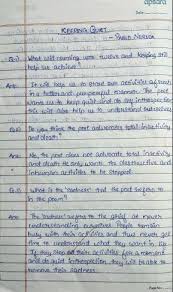 apsara
Date
KEEPING QUIET
- PABLO NERUDA
Q.1) What will counting upto twelve and keeping still
help us achieve?
Ans: It will help us to think our activities afresh
in a better and purposeful manner. The poet
wants us to keep quiet and do any introspection
this will also help us to understand ourselves
Q.2) Do you think the poet advocates total inactivity
and death?
Ans: No, the poet does not advocate total inactivity
and death. He only wants the destructive and
inhuman activities to be stopped
Q.3) What is the 'sadness' that the poet refers to
in the poem?
Ans: The 'sadness' refers to the grief of never
understanding ourselves. People remain
busy with their activities and thus never get
time to understand what they want in life
If they stop all their activities for a moment
and do quiet introspection, they will be able to
remove their sadness.